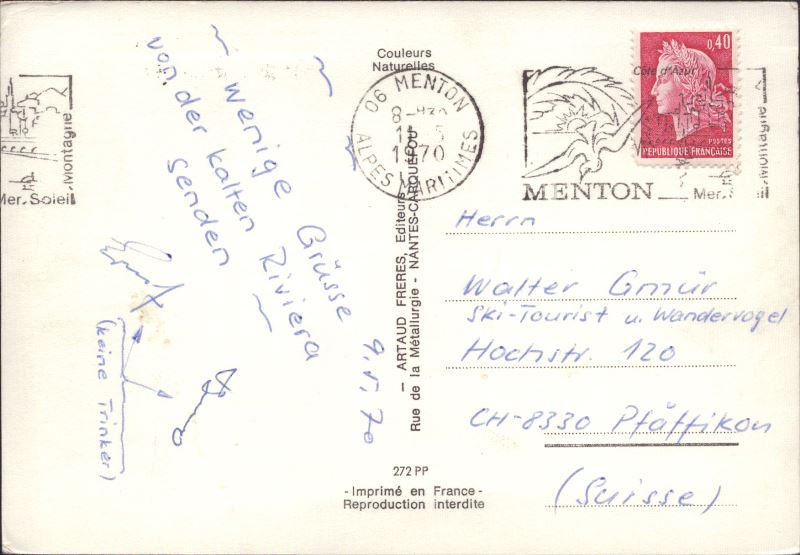 ~ Wenige Grüsse
von der kalten Riviera ~
senden
9.V.70
Ernst
(keine Trinker)
Couleurs
Naturelles
— ARTAUD FRERES, Editeurs
Rue de la Métallurgie - NANTES-CARQUEFOU
272 PP
- Imprimé en France -
Reproduction interdite
06 MENTON
1970
ALPES MARITIMES
Côte d'Azur
MENTON
Mer. Soleil
Montagne
0,40
POSTES
REPUBLIQUE FRANÇAISE
Mer.
Montagne
Herrn
Walter Gmür
Ski-Tourist u. Wandervogel
Hochstr. 120
CH-8330 Pfäffikon
(Suisse)